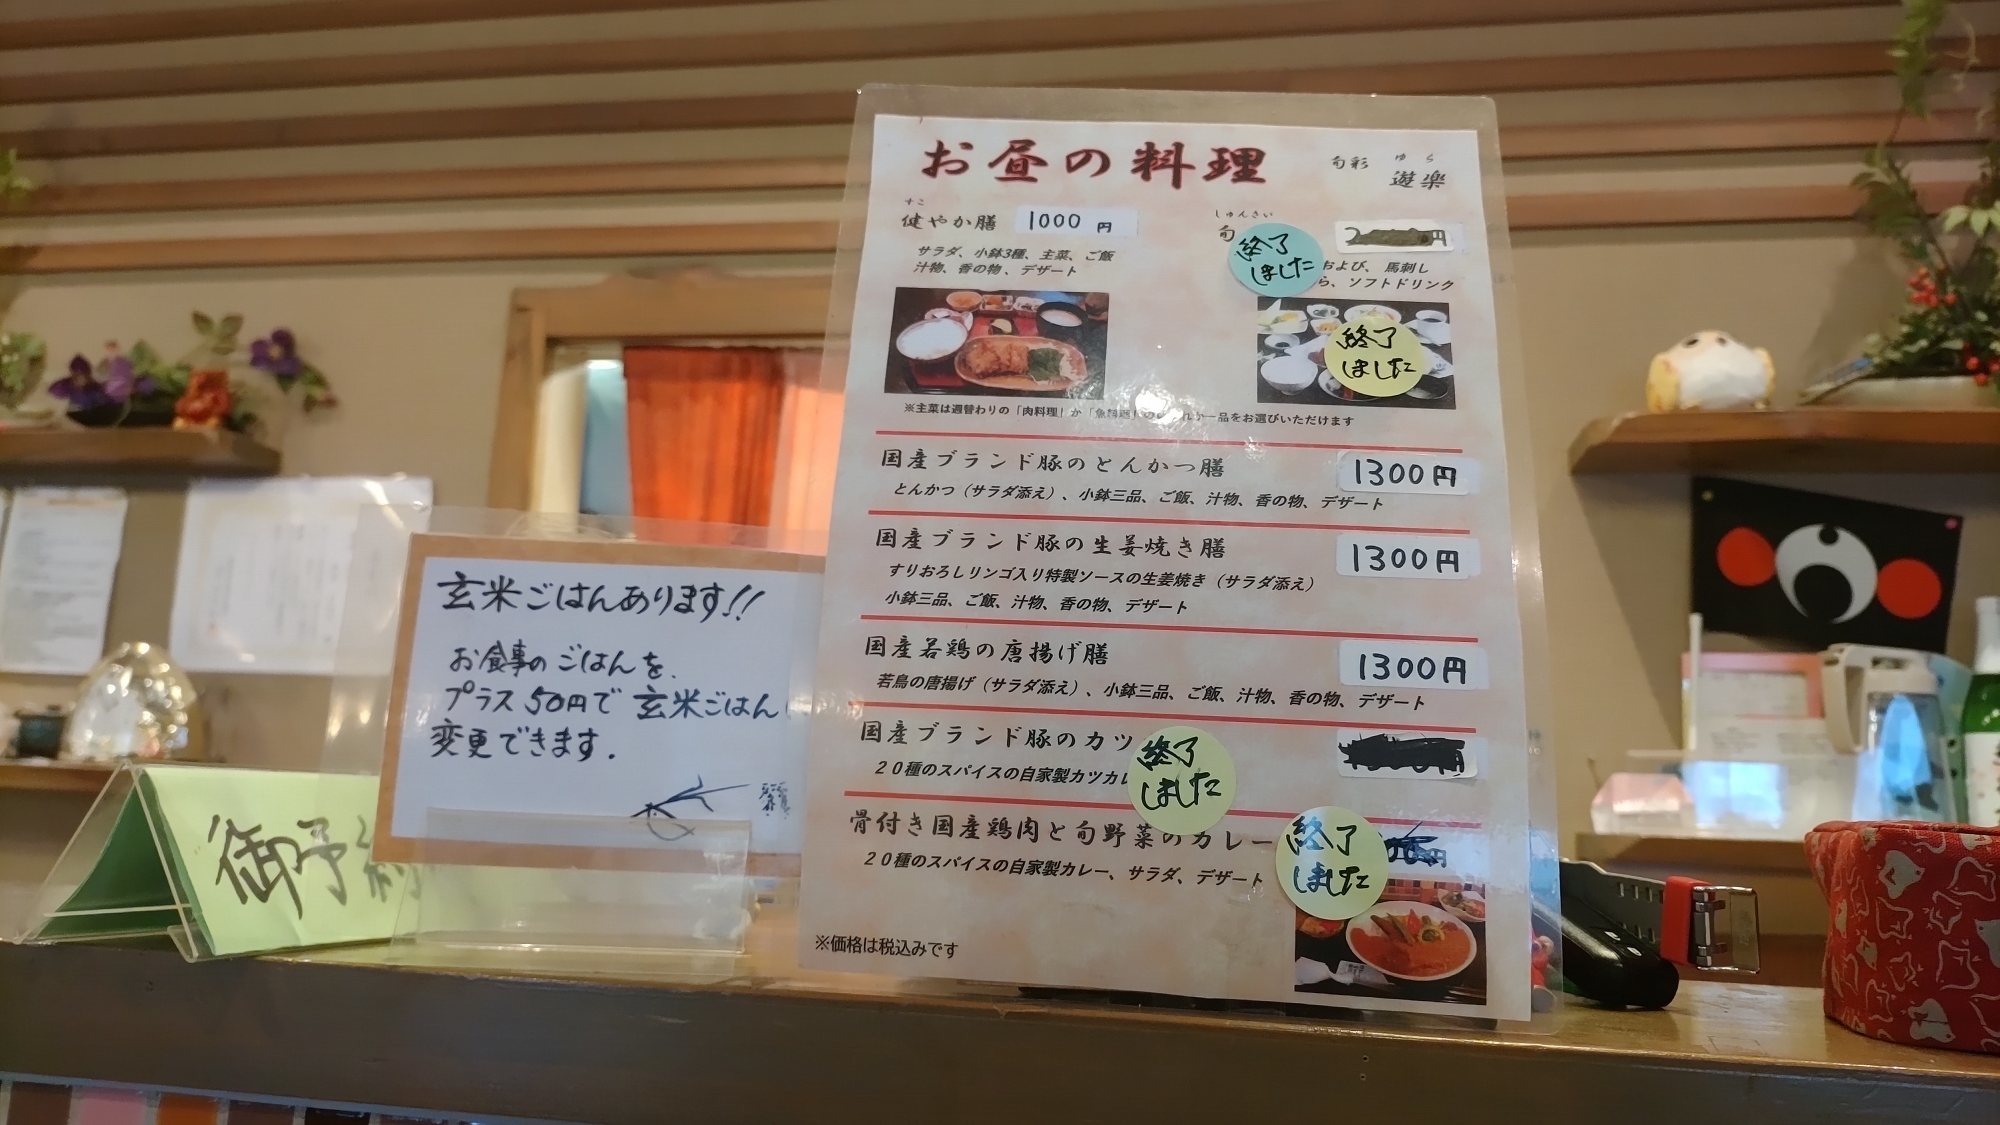 お昼の料理
旬彩 遊楽
ゆら
すこ
健やか膳 1000円
サラダ、小鉢3種、主菜、ご飯
汁物、香の物、デザート
しゅんさい
旬
終了
しました
円
および、馬刺し
ら、ソフトドリンク
終了
しました
※主菜は週替わりの「肉料理」か「魚料理」のいずれか一品をお選びいただけます
国産ブランド豚のとんかつ膳 1300円
とんかつ（サラダ添え）、小鉢三品、ご飯、汁物、香の物、デザート
国産ブランド豚の生姜焼き膳 1300円
すりおろしリンゴ入り特製ソースの生姜焼き（サラダ添え）
小鉢三品、ご飯、汁物、香の物、デザート
国産若鶏の唐揚げ膳 1300円
若鳥の唐揚げ（サラダ添え）、小鉢三品、ご飯、汁物、香の物、デザート
国産ブランド豚のカツ
円
20種のスパイスの自家製カツカレ
終了
しました
骨付き国産鶏肉と旬野菜のカレー
円
20種のスパイスの自家製カレー、サラダ、デザート
終了
しました
※価格は税込みです
玄米ごはんあります!!
お食事のごはんを、
プラス50円で玄米ごはんに
変更できます.
御予約